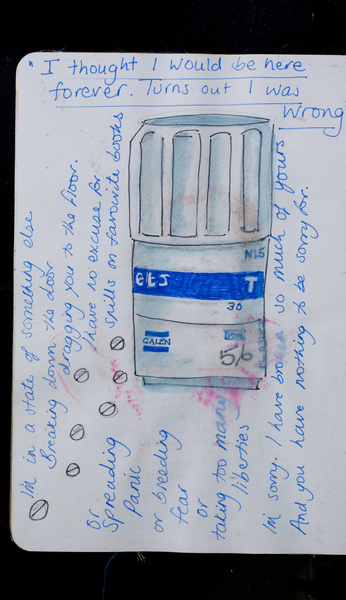 " I thought I would be here
forever. Turns out I was
wrong
I'm in a state of something else
Breaking down the door
dragging you to the floor.
I have no excuse for
spills on favourite books
or
Spreading
Panic
or breeding
fear
or
taking too many
liberties
I'm sorry. I have broken so much of yours
And you have nothing to be sorry for.
ets T
30
GALEN